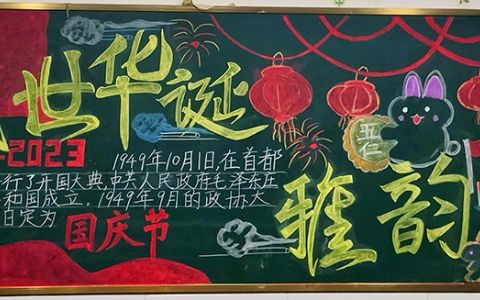 世华诞
-2023
1949年10月1日,在首都
行了开国大典,中共人民政府毛泽东庄
和国成立.1949年9月的政协大
日定为
国庆节
五仁
雅韵